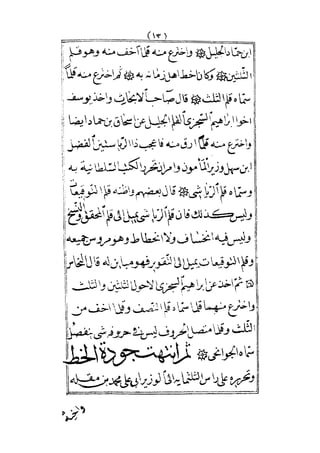 (١٣)
ابن حماد الجليل واخترع منه قلما اخف منه وهو قلم
الثلثين وكان اخط اهل زمانه به ثم اخترع منه قلما
سماه قلم الثلث قال صاحب الابحاث واخذ يوسف
اخو ابراهيم السجزى القلم الجليل عن اسحاق بن حماد ايضا
واخترع منه قلما ارق منه فاعجب ذا الرياستين الفضل
ابن سهل وزير المأمون وامر ان تحرر الكتب السلطانية به
وسماه قلم الرياسى قال بعضهم واظنه قلم التوقيعات
وليس كذلك فان قلم الرياسى يميل الى قلم المحقق والنسخ
وليس فيه انخساف ولا انحطاط وهو مروس جميعه
وقلم التوقيعات يميل الى التقوير فهو مباين له قال النحاس
ثم اخذ عن ابراهيم السجزى الاحول الثلثين والثلث
واخترع منهما قلما سماه قلم النصف وقلما اخف من
الثلث وقلما متصل الحروف ليس فى حروفه شى ينفصل
سماه ثم انتهت جودة الخط
وتحريره على راس الثلثماية الى الوزير ابى على محمد بن مقله